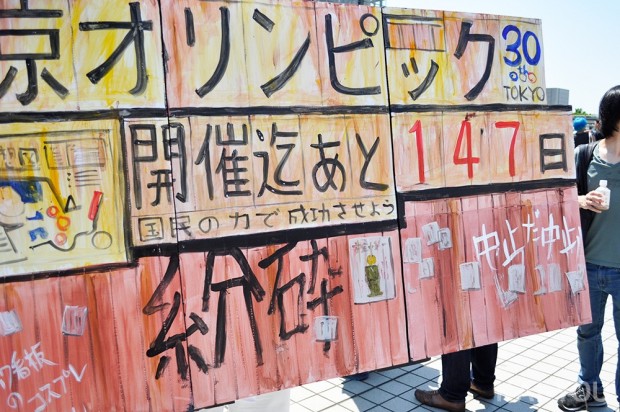 京オリンピック
30
TOKYO
開催迄あと147日
国民の力で成功させよう
粉砕
中止だ中止
看板
のコスプレ